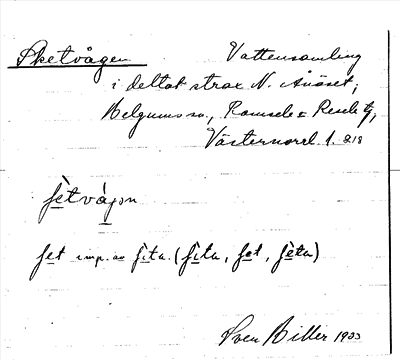 Sketvågen Vattensamling
i deltat strax N. Anäset,
Helgums sn., Ramsele o Resele tg,
Västernorrl. l. 218
fètvágɔn
fet imp. av fita. (fita, fet, fèta)
Sven Biller 1933